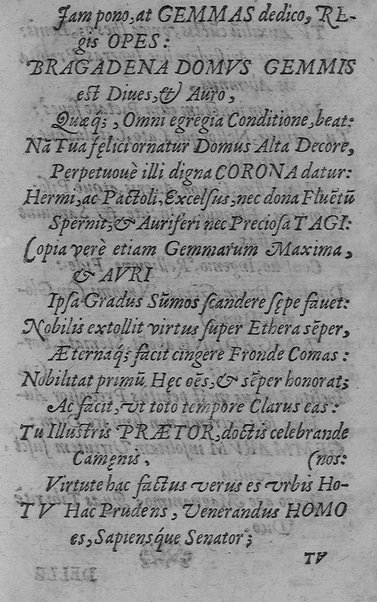 Jam pono, at GEMMAS dedico, RE-
gis OPES:
BRAGADENA DOMVS GEMMIS
est Diues, & Auro,
Quæq́;, Omni egregia Conditione, beat:
Nã Tua felici ornatur Domus Alta Decore,
Perpetuouè illi digna CORONA datur:
Hermi, ac Pactoli, Excelsus, nec dona Fluẽtũ
Spernit, & Auriferi nec Preciosa TAGI:
Copia verè etiam Gemmarum Maxima,
& AVRI
Ipsa Gradus Sũmos scandere sępe fauet:
Nobilis extollit virtus super Ethera sẽper,
Æternaq́; facit cingere Fronde Comas:
Nobilitat primũ Hęc oẽs, & sẽper honorat;
Ac facit, vt toto tempore Clarus eas:
Tu Illustris PRÆTOR, doctis celebrande
Camęnis, (nos:
Virtute hac factus verus es vrbis Ho-
TV Hac Prudens, Venerandus HOMO
es, Sapiensq́ue Senator;
TV